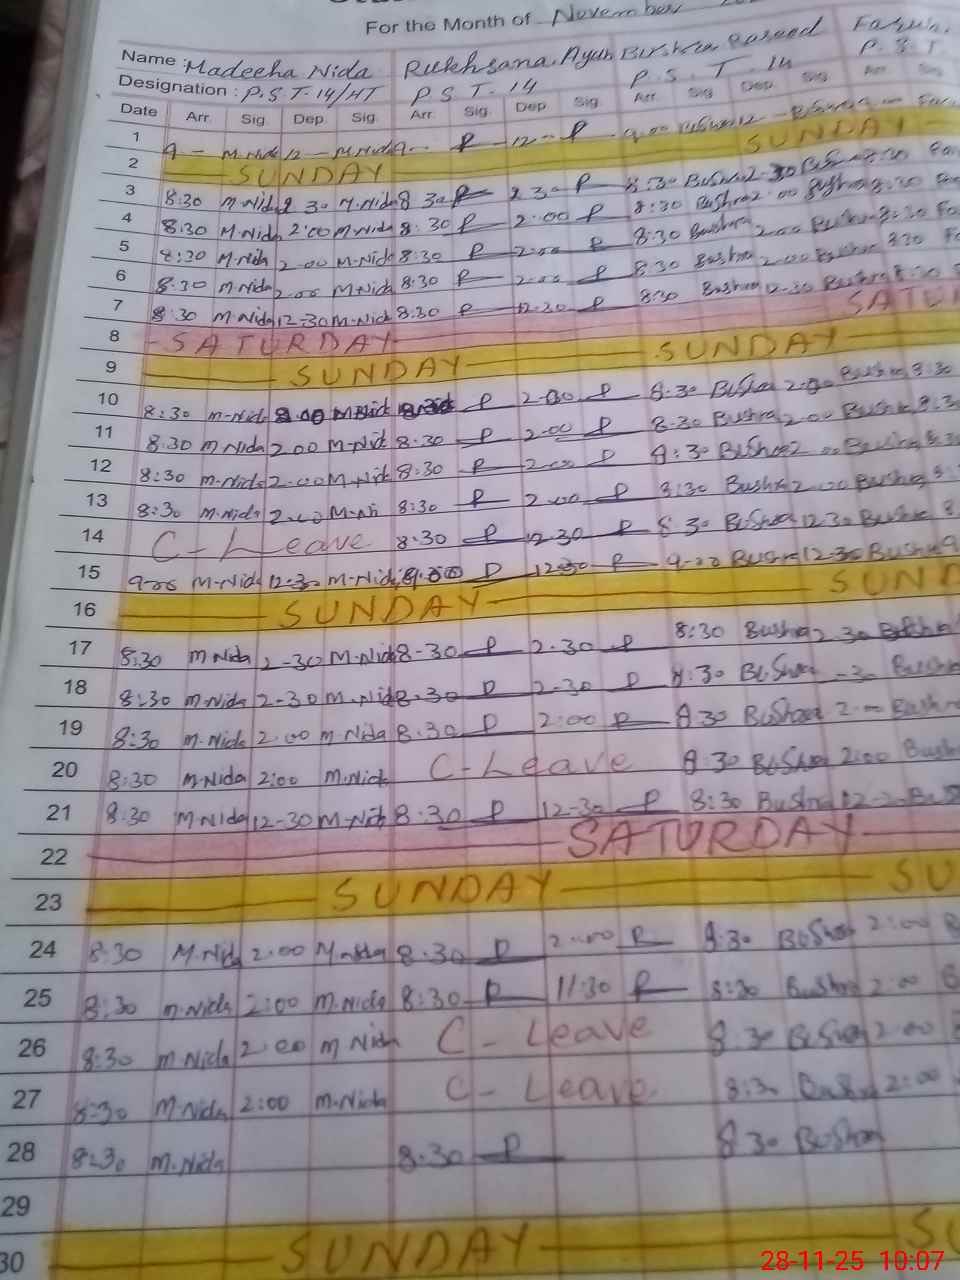 For the Month of November
Name : Madeeha Nida Rukhsana Ayub Bushra Rasand
Designation : P.S.T-14/HT P S T - 14 P. S. T - 14 P. S. T
Date Arr. Sig. Dep. Sig. Arr. Sig. Dep. Sig. Arr. Sig. Dep. Sig. Arr. Sig.
1 9 - M.Nida 12 - M.Nida 9 - P 12 - P 9.00 Bushra 12 -
2 SUNDAY SUNDAY
3 8:30 M.Nida 2 30 M.Nida 8 30 P 2 30 P 8:30 Bushra 2-30 Bushra 8:30
4 8:30 M.Nida 2:00 M.Nida 8:30 P 2:00 P 8:30 Bushra 2:00 Bushra 8:30
5 8:30 M.Nida 2.00 M.Nida 8:30 P 2:00 P 8:30 Bushra 2.00 Bushra 8:30
6 8:30 M.Nida 2.00 M.Nida 8:30 P 2:00 P 8:30 Bushra 2.00 Bushra 8:30
7 8:30 M.Nida 12-30 M.Nida 8:30 P 12-30 P 8:30 Bushra 12-30 Bushra 8:30
8 SATURDAY SATUR
9 SUNDAY SUNDAY
10 8:30 M.Nida M.Nida P 2-00 P 8:30 Bushra 2-00 Bushra 8:30
11 8:30 M.Nida 2.00 M.Nida 8:30 P 2:00 P 8:30 Bushra 2.00 Bushra 8:3
12 8:30 M.Nida 2.00 M.Nida 8:30 P 2:00 P 8:30 Bushra 2.00 Bushra
13 8:30 M.Nida 2.00 M.Ni 8:30 P 2:00 P 8:30 Bushra 2.00 Bushra
14 C-Leave 8:30 P 12.30 P 8:30 Bushra 12.30 Bushra
15 9-00 M.Nida 12-30 M.Nida P 12-30 P 9-00 Bushra 12-30 Bushra 9
16 SUNDAY SUND
17 8:30 M.Nida 2-30 M.Nida 8-30 P 2-30 P 8:30 Bushra 2 30 Bushra
18 8:30 M.Nida 2-30 M.Nida 8-30 P 2-30 P 8:30 Bushra -30 Bushra
19 8:30 M.Nida 2.00 M.Nida 8:30 P 2:00 P 8:30 Bushra 2:00 Bushra
20 8:30 M.Nida 2:00 M.Nida C-Leave 8:30 Bushra 2:00 Bush
21 8:30 M.Nida 12-30 M.Nida 8:30 P 12-30 P 8:30 Bushra 12-30 Bus
22 SATURDAY
23 SUNDAY SU
24 8:30 M.Nida 2:00 M.Nida 8:30 P 2:00 P 8:30 Bushra 2:00 B
25 8:30 M.Nida 2:00 M.Nida 8:30 P 11:30 P 8:30 Bushra 2:00 B
26 8:30 M.Nida 2:00 M Nida C-Leave 8:30 Bushra 2:00
27 8:30 M.Nida 2:00 M.Nida C-Leave 8:30 Bushra 2:00
28 8:30 M.Nida 8:30 P 8:30 Bushra
29
30 SUNDAY SU
28-11-25 10:07